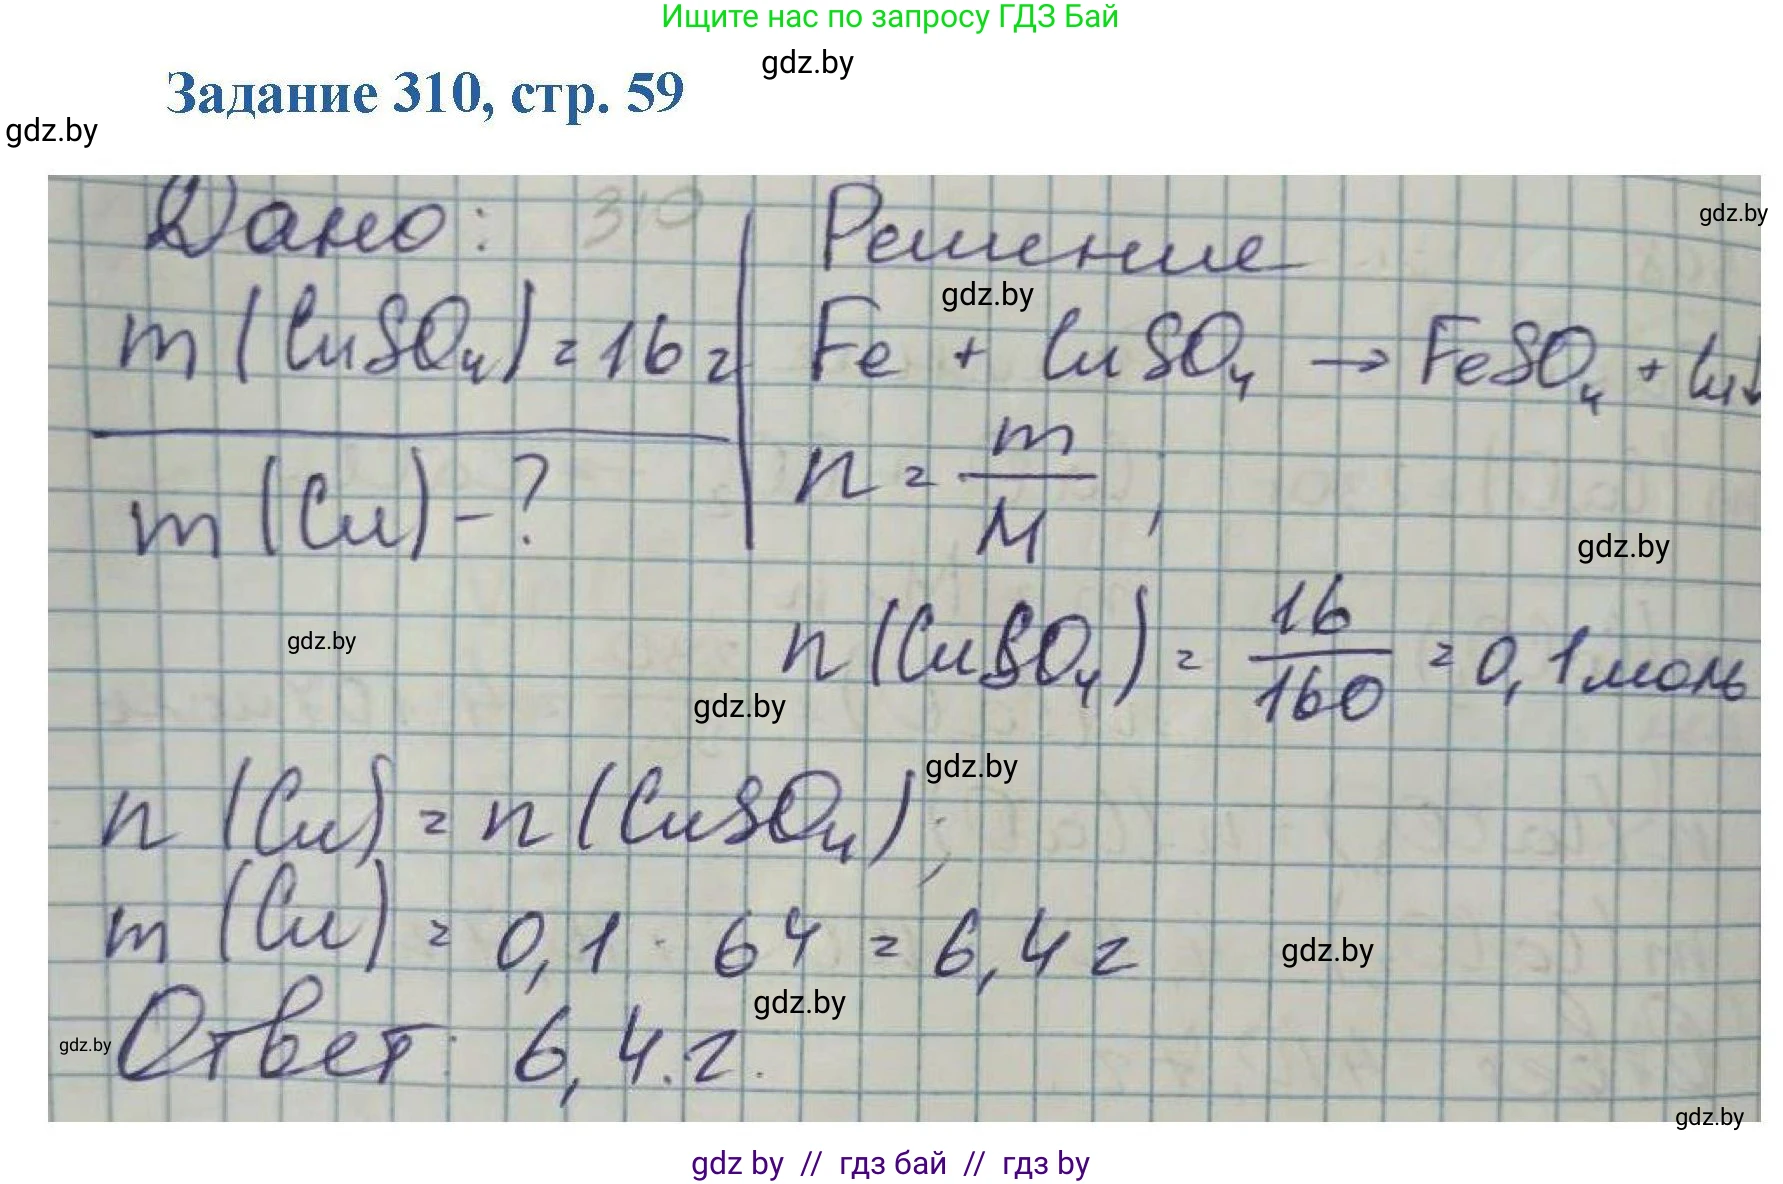 Ищите нас по запросу ГДЗ Бай
gdz.by
Задание 310, стр. 59
gdz.by
Дано: 310
Решение
gdz.by
m (CuSO4) = 16 г
gdz.by
Fe + CuSO4 → FeSO4 + Cu↓
m (Cu) - ?
n = m/M ,
gdz.by
n (CuSO4) = 16/160 = 0,1 моль
gdz.by
gdz.by
gdz.by
n (Cu) = n (CuSO4);
m (Cu) = 0,1 · 64 = 6,4 г
gdz.by
gdz.by
gdz.by
Ответ: 6,4.г.
gdz.by
gdz by // гдз бай // гдз by